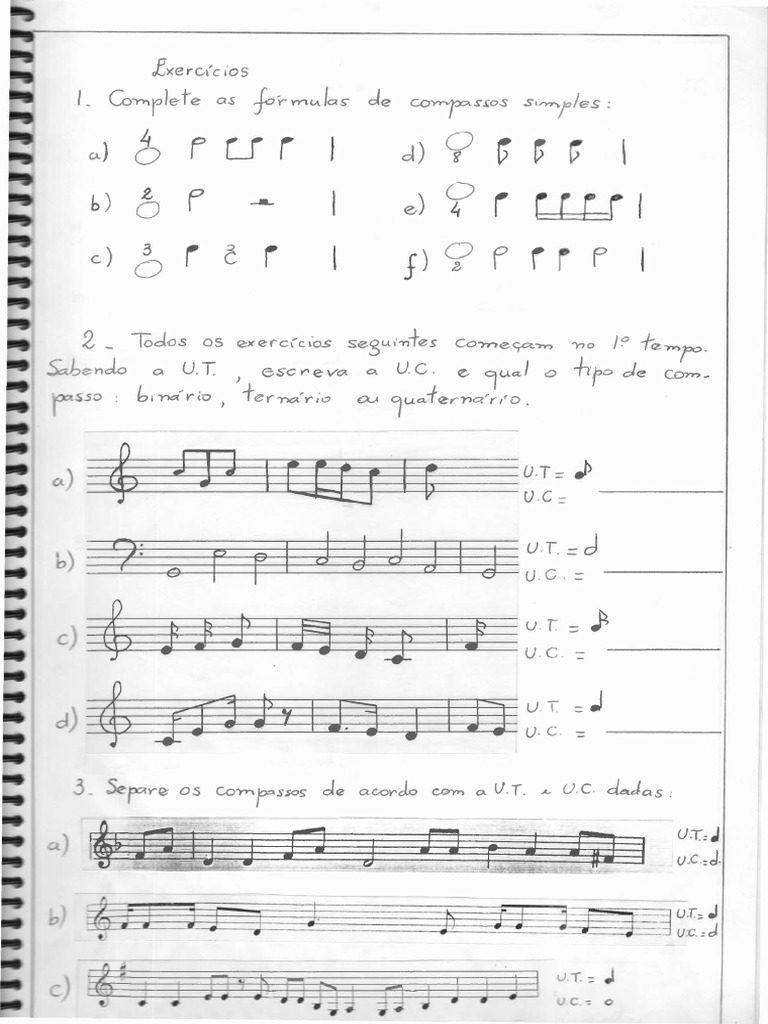 Exercícios
1. Complete as fórmulas de compassos simples:
a) 4 d) 8
b) 2 e) 4
c) 3 f) 2
2 - Todos os exercícios seguintes começam no 1º tempo.
Sabendo a U.T. , escreva a U.C. e qual o tipo de com-
passo: binário, ternário ou quaternário.
a) U.T =
U.C =
b) U.T. =
U.C. =
c) U.T. =
U.C. =
d) U.T. =
U.C. =
3. Separe os compassos de acordo com a U.T. e U.C. dadas:
a) U.T. =
U.C. =
b) U.T. =
U.C. =
c) U.T. =
U.C. =